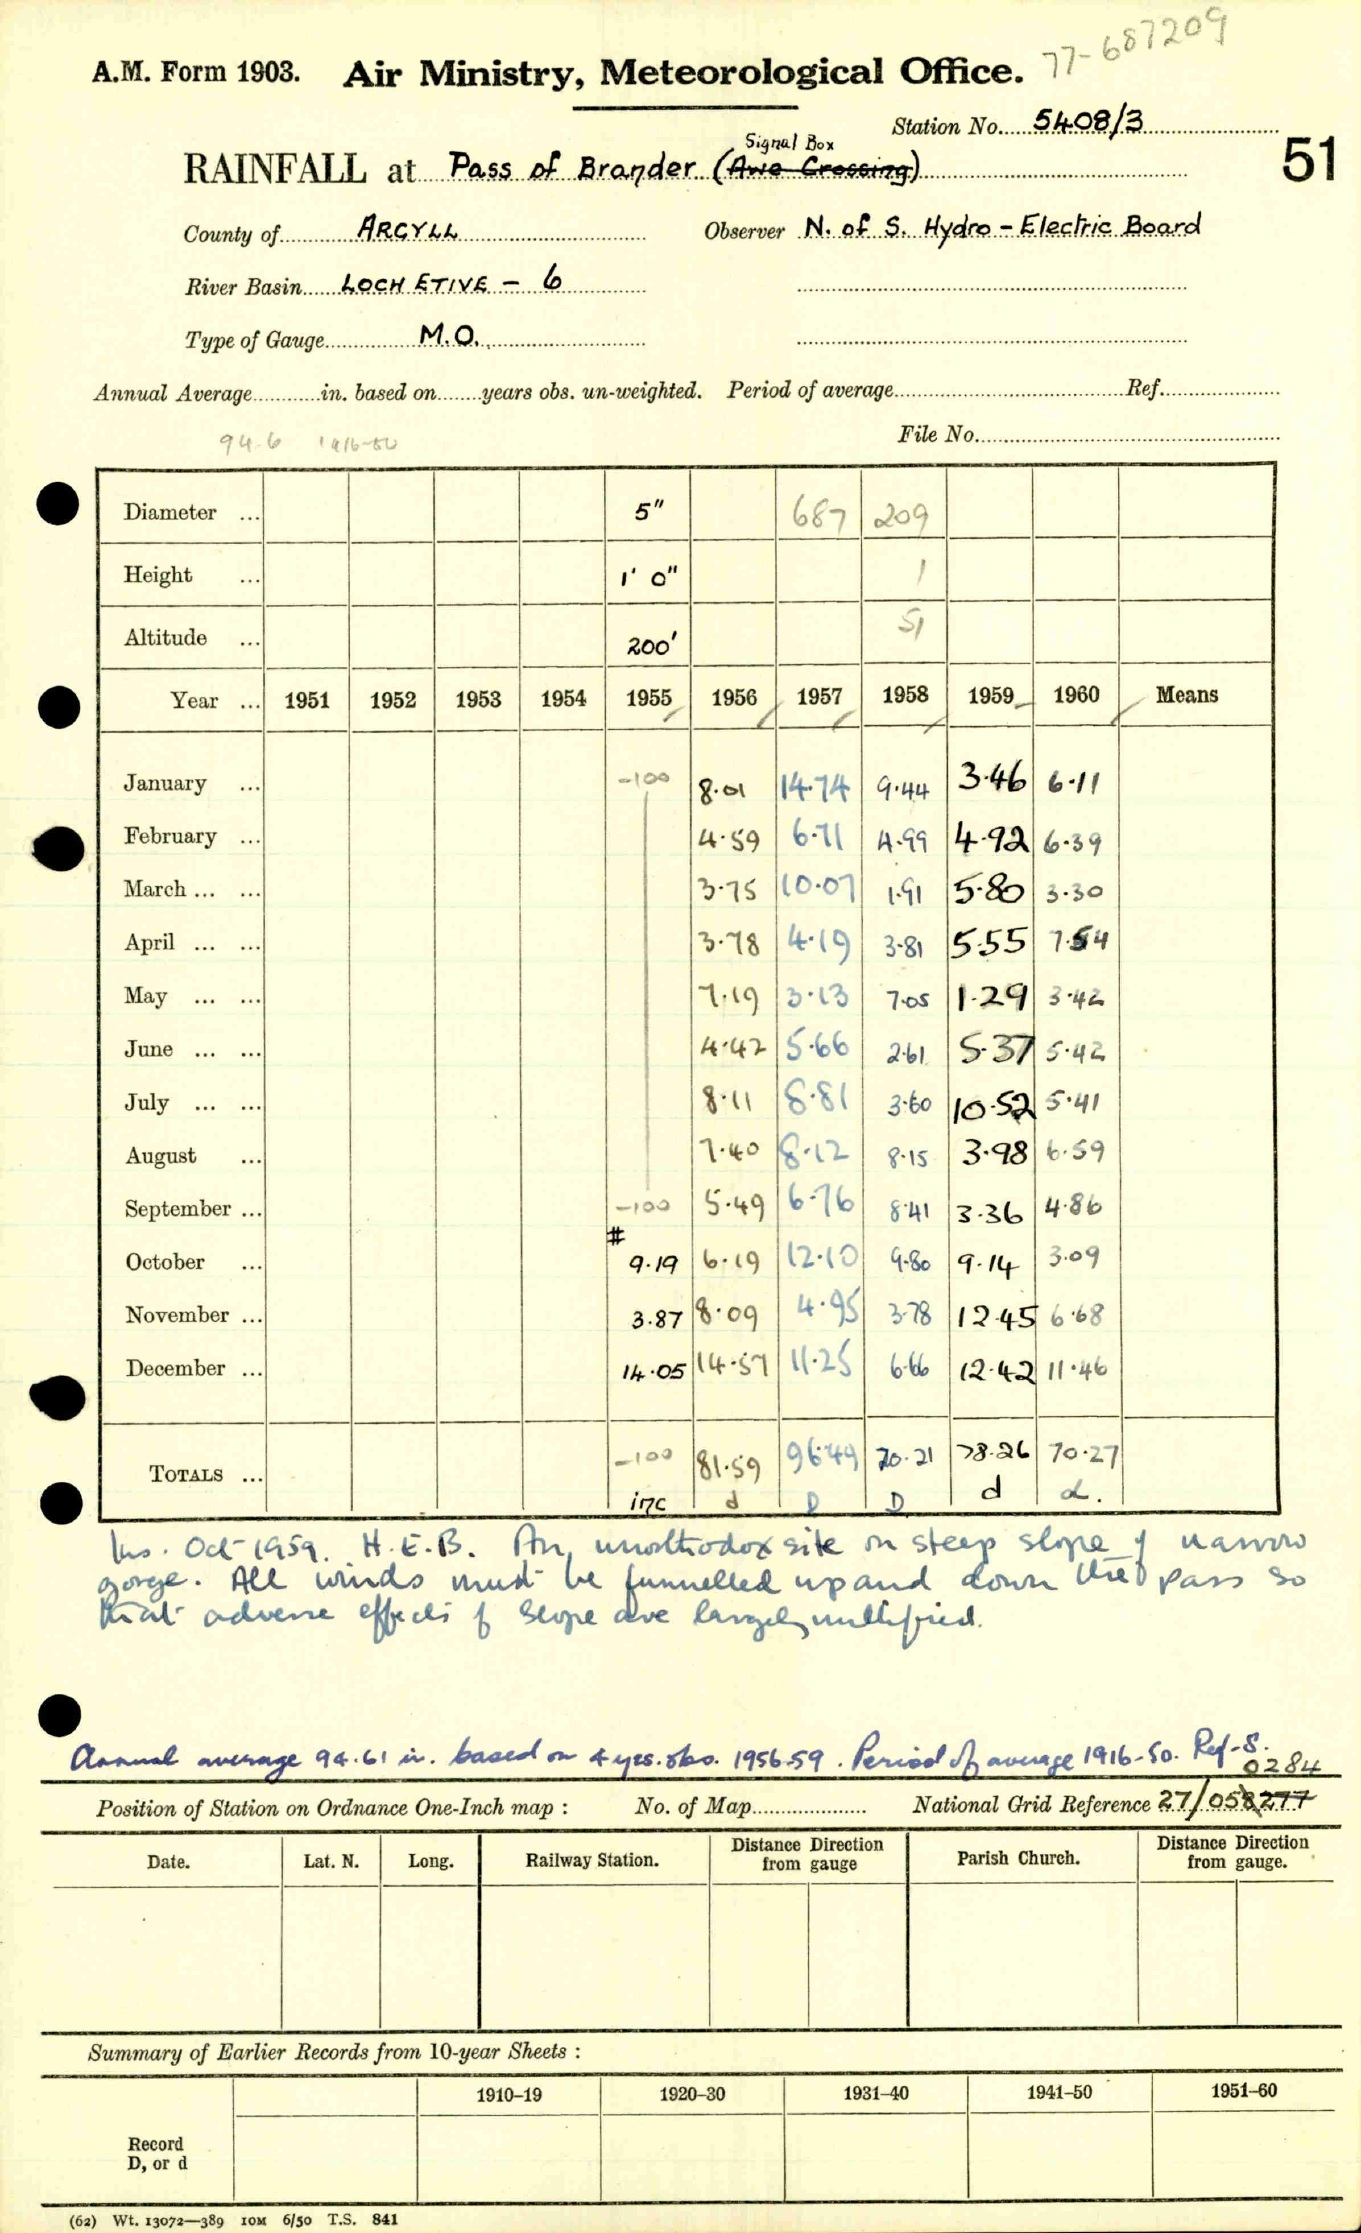 77-687209
A.M. Form 1903. Air Ministry, Meteorological Office.
Station No. 5408/3
Signal Box
RAINFALL at Pass of Brander (Awe Crossing) 51
County of ARGYLL Observer N. of S. Hydro-Electric Board
River Basin LOCH ETIVE - 6
Type of Gauge M.O.
Annual Average in. based on years obs. un-weighted. Period of average Ref.
94.6 1916-50 File No.
Diameter ... 5" 687 209
Height ... 1' 0" 1
Altitude ... 200' 51
Year ... 1951 1952 1953 1954 1955 1956 1957 1958 1959 1960 Means
January ... -100 8.01 14.74 9.44 3.46 6.11
February ... 4.59 6.71 4.99 4.92 6.39
March ... ... 3.75 10.07 1.91 5.80 3.30
April ... ... 3.78 4.19 3.81 5.55 7.54
May ... ... 7.19 3.13 7.05 1.29 3.42
June ... ... 4.42 5.66 2.61 5.37 5.42
July ... ... 8.11 8.81 3.60 10.52 5.41
August ... 7.40 8.12 8.15 3.98 6.59
September ... -100 5.49 6.76 8.41 3.36 4.86
#
October ... 9.19 6.19 12.10 9.80 9.14 3.09
November ... 3.87 8.09 4.95 3.78 12.45 6.68
December ... 14.05 14.57 11.25 6.66 12.42 11.46
TOTALS ... -100 81.59 96.49 70.21 78.26 70.27
inc d D D d d.
Ins. Oct 1959. H.E.B. An unorthodox site on steep slope of narrow
gorge. All winds must be funnelled up and down the pass so
that adverse effects of slope are largely nullified.
Annual average 94.61 in. based on 4 yrs. obs. 1956-59. Period of average 1916-50. Ref-S.
0284
Position of Station on Ordnance One-Inch map : No. of Map National Grid Reference 27/058277
Date. Lat. N. Long. Railway Station. Distance Direction from gauge Parish Church. Distance Direction from gauge.
Summary of Earlier Records from 10-year Sheets :
1910–19 1920–30 1931–40 1941–50 1951–60
Record
D, or d
(62) Wt. 13072—389 10M 6/50 T.S. 841